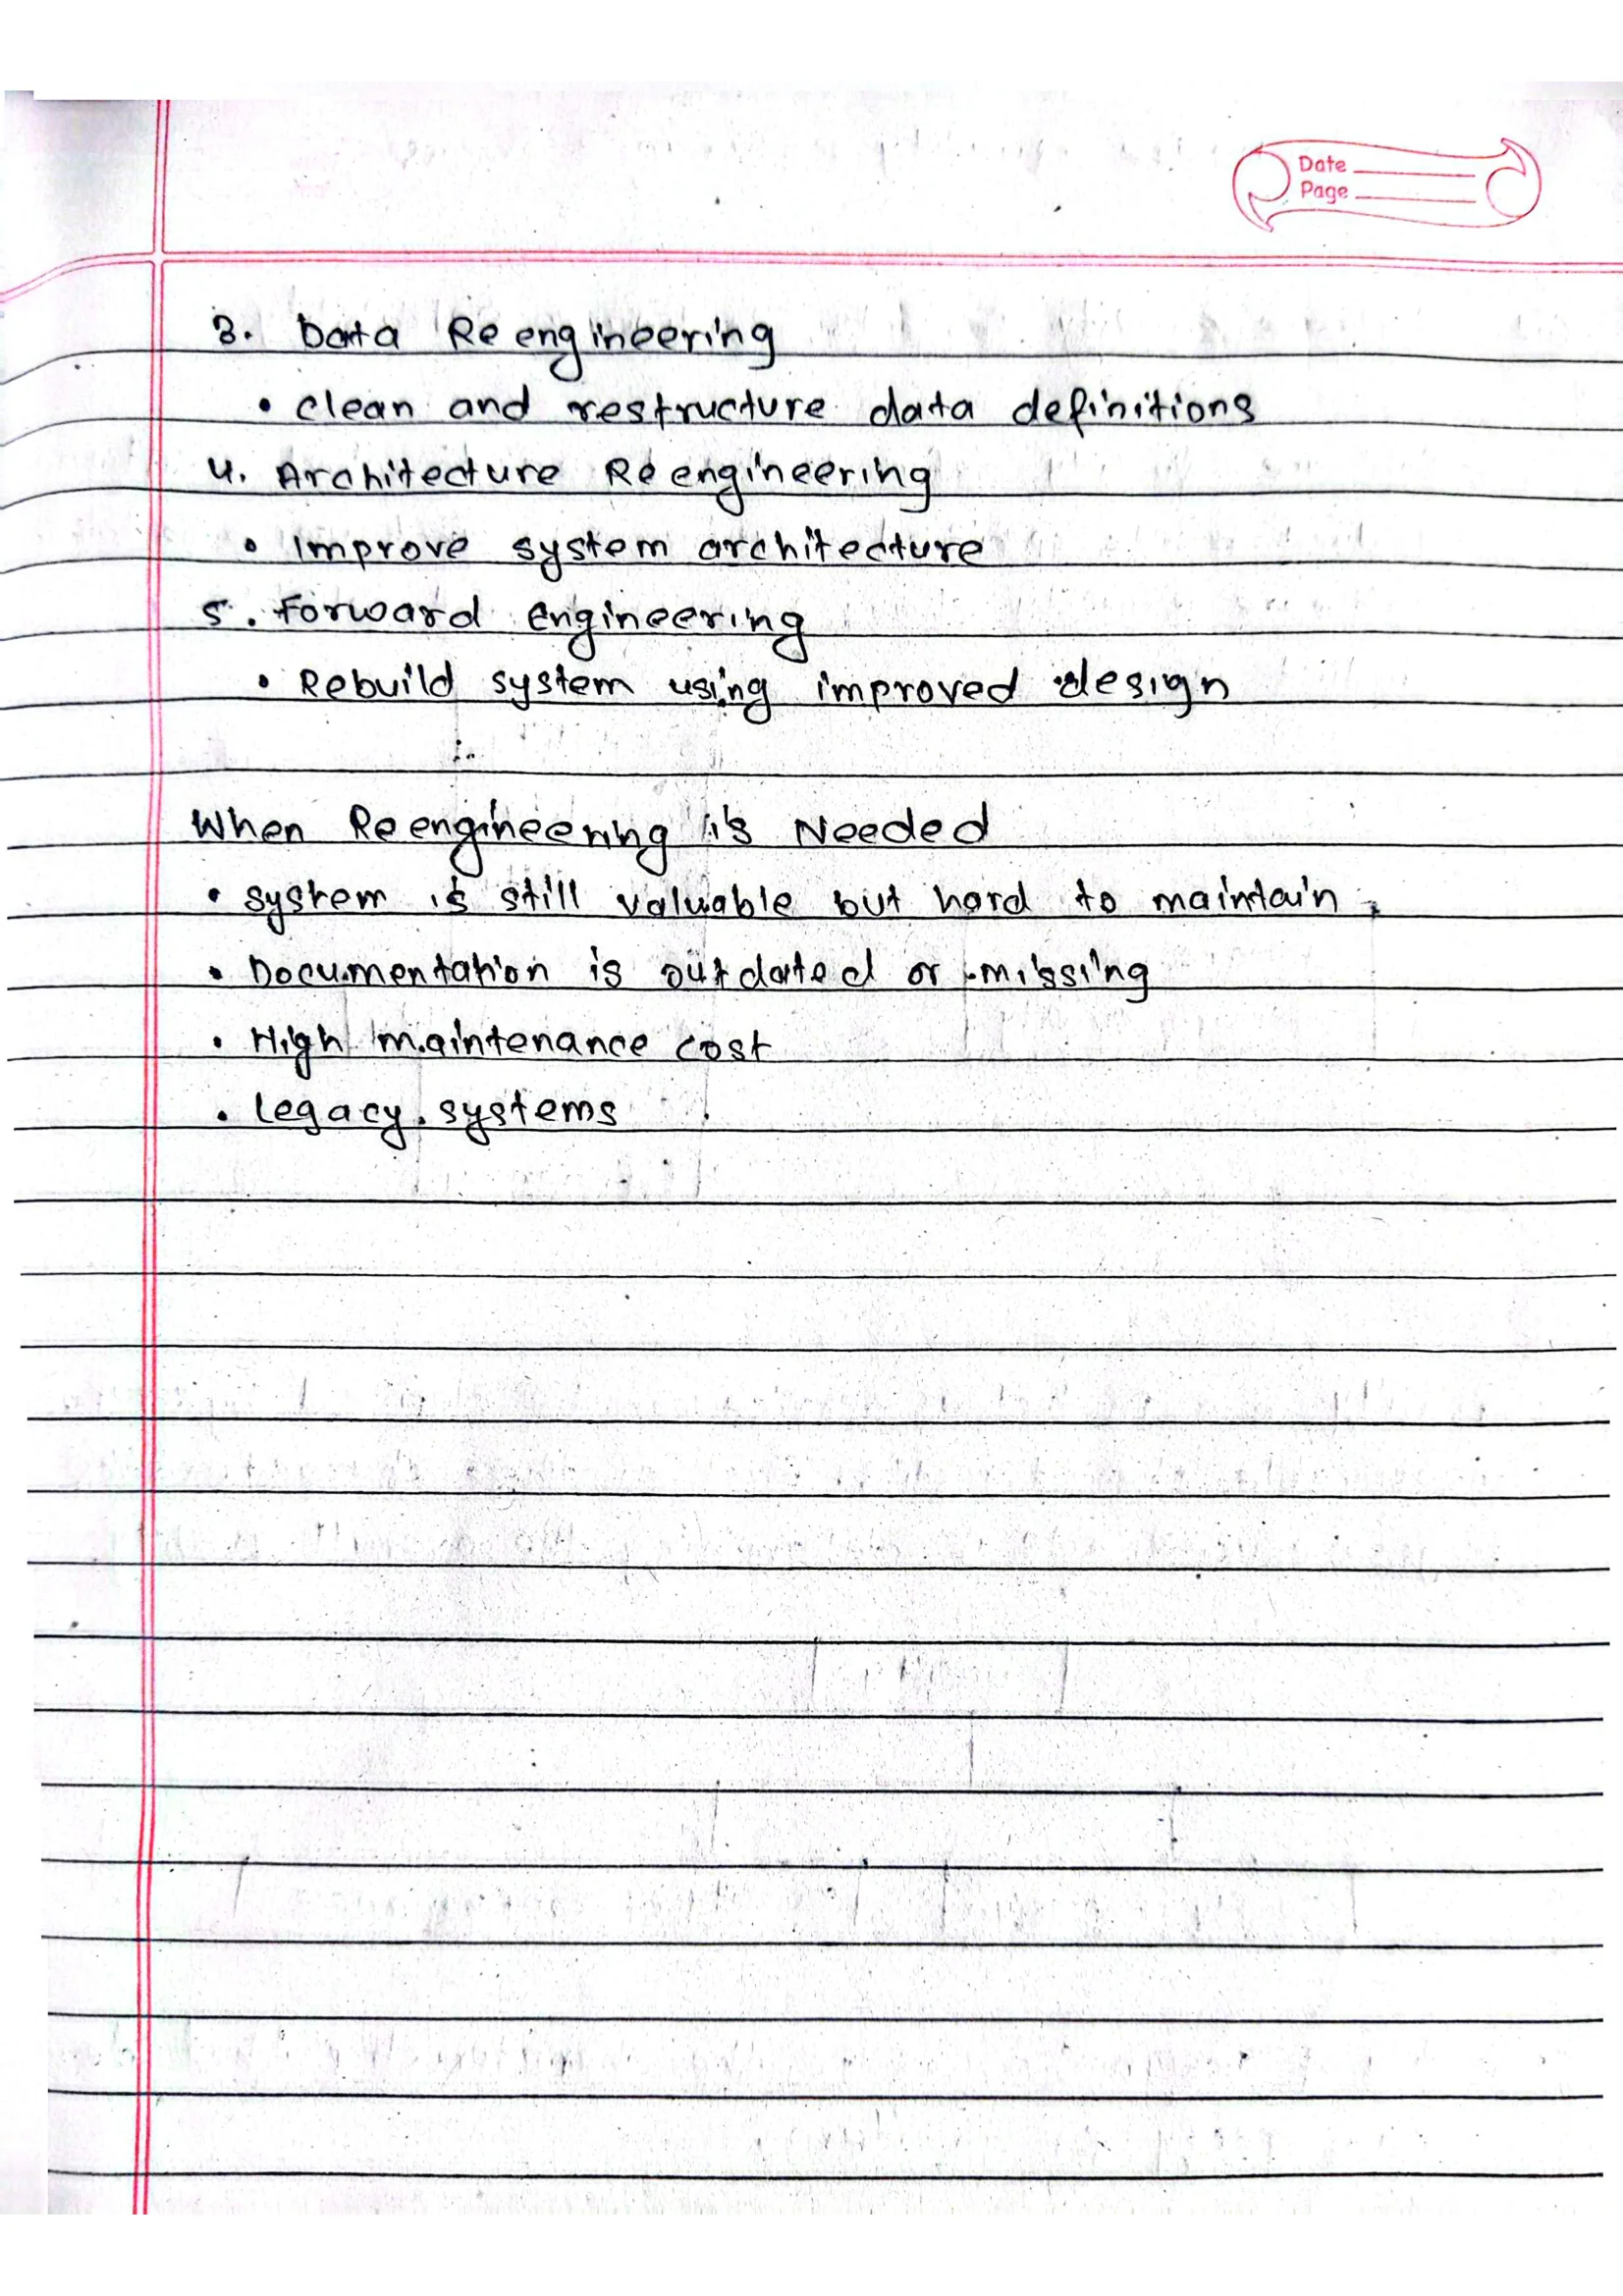 Date
Page
3. Data Reengineering
• Clean and restructure data definitions
4. Architecture Reengineering
• Improve system architecture
5. Forward Engineering
• Rebuild system using improved design
When Reengineering is Needed
• system is still valuable but hard to maintain
• Documentation is outdated or missing
• High maintenance cost
• Legacy systems